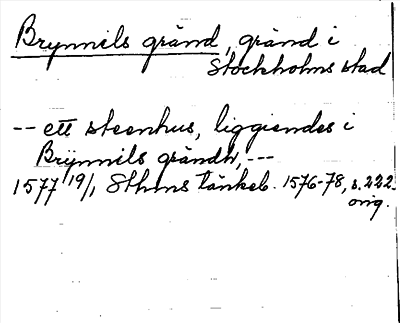 Brynnils gränd, gränd i
Stockholms stad
-- ett steenhus, liggiendes i
Brÿnnils grändh, ---
1577 19/1, Sthms tänkeb. 1576-78, s. 222.
orig.